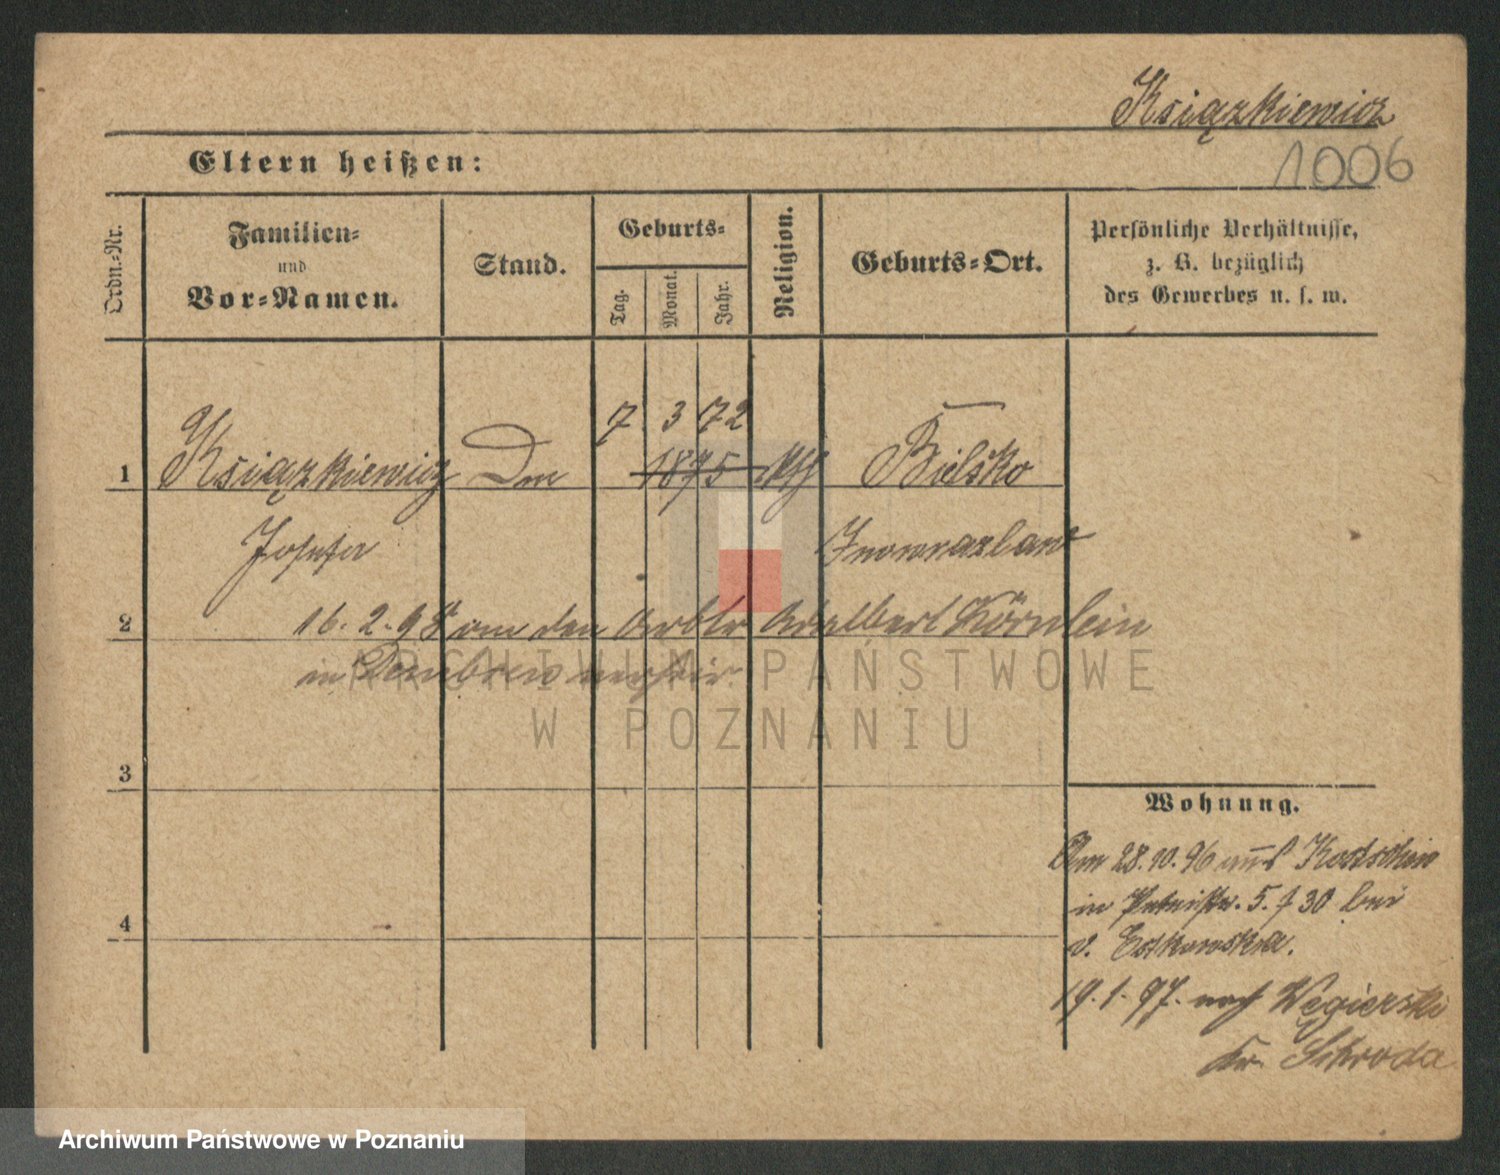 Książkiewicz
1006
Eltern heißen:
Ordn.-Nr.
Familien-
und
Vor-Namen.
Stand.
Geburts-
Tag.
Monat.
Jahr.
Religion.
Geburts-Ort.
Persönliche Verhältnisse,
z. B. bezüglich
des Gewerbes u. s. w.
7 3 72
1 Książkiewicz 1875 kth Bielsko
Josefa Inowrazlaw
2 16. 2. 98 an den Arbtr Adalbert Körnlein
in
ARCHIWUM PAŃSTWOWE
W POZNANIU
3
Wohnung.
28.10.96 aus Kostschin
in 5. f 30 bei
4
v. Estkowska.
19.1.97. nach Węgierski
Kr. Schroda
Archiwum Państwowe w Poznaniu